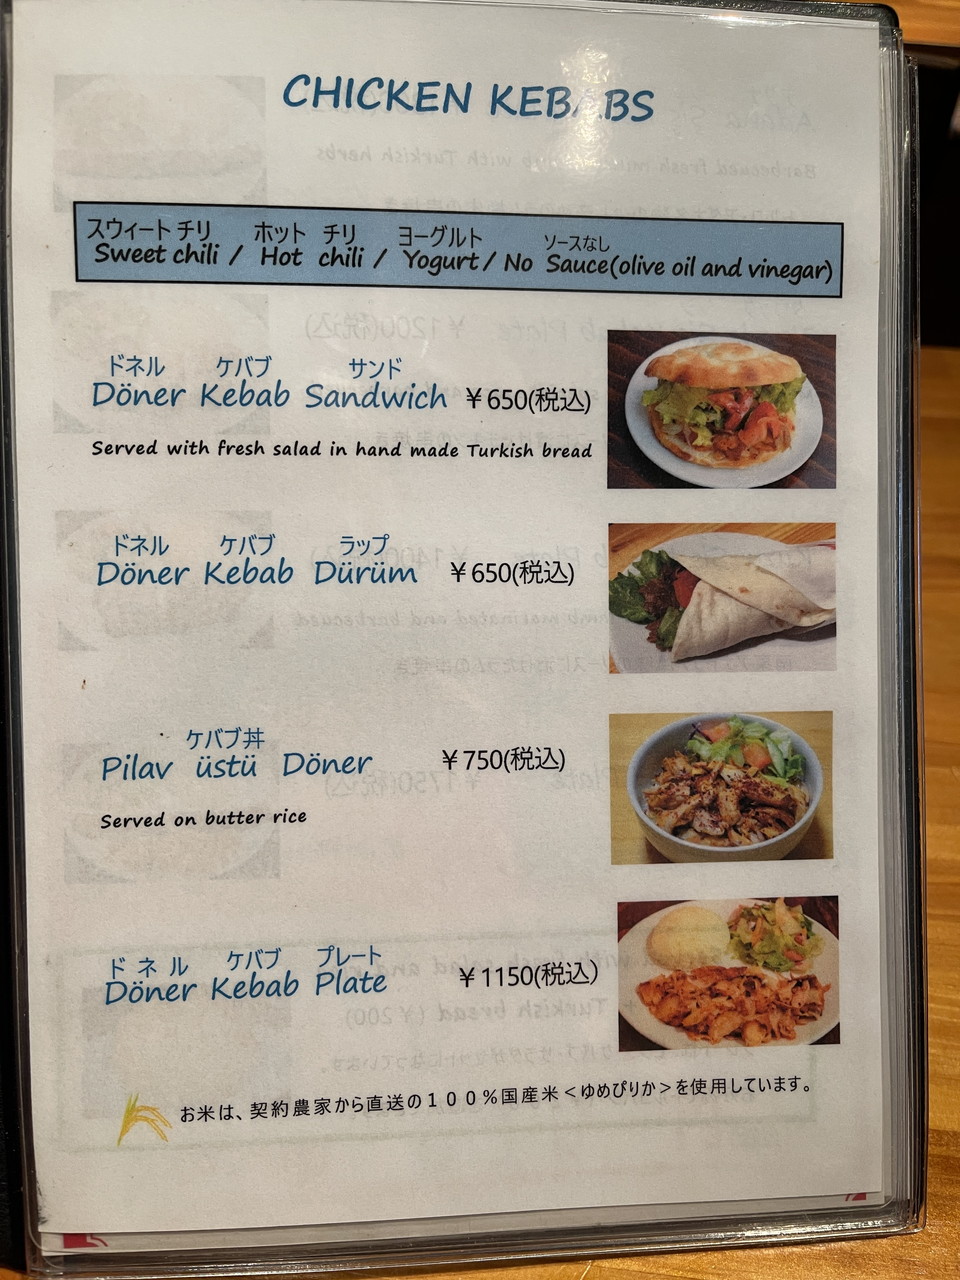 CHICKEN KEBABS
スウィート チリ ホット チリ ヨーグルト ソースなし
Sweet chili / Hot chili / Yogurt / No Sauce(olive oil and vinegar)
ドネル ケバブ サンド
Döner Kebab Sandwich ￥650(税込)
Served with fresh salad in hand made Turkish bread
ドネル ケバブ ラップ
Döner Kebab Dürüm ￥650(税込)
ケバブ丼
Pilav üstü Döner ￥750(税込)
Served on butter rice
ドネル ケバブ プレート
Döner Kebab Plate ￥1150(税込)
お米は、契約農家から直送の１００％国産米＜ゆめぴりか＞を使用しています。